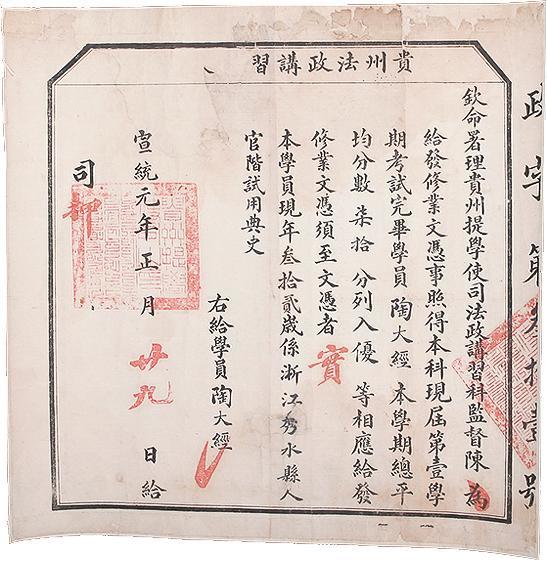 貴州法政講習
政字第叁拾壹號
欽命署理貴州提學使司法政講習科監督陳 為
給發修業文憑事照得本科現屆第壹學
期考試完畢學員 陶大經 本學期總平
均分數 柒拾 分列入優 等相應給發
修業文憑須至文憑者 實
本學員現年叁拾貳歲係浙江秀水縣人
官階試用典史
右給學員陶大經
宣統元年正月廿九日給
司 押